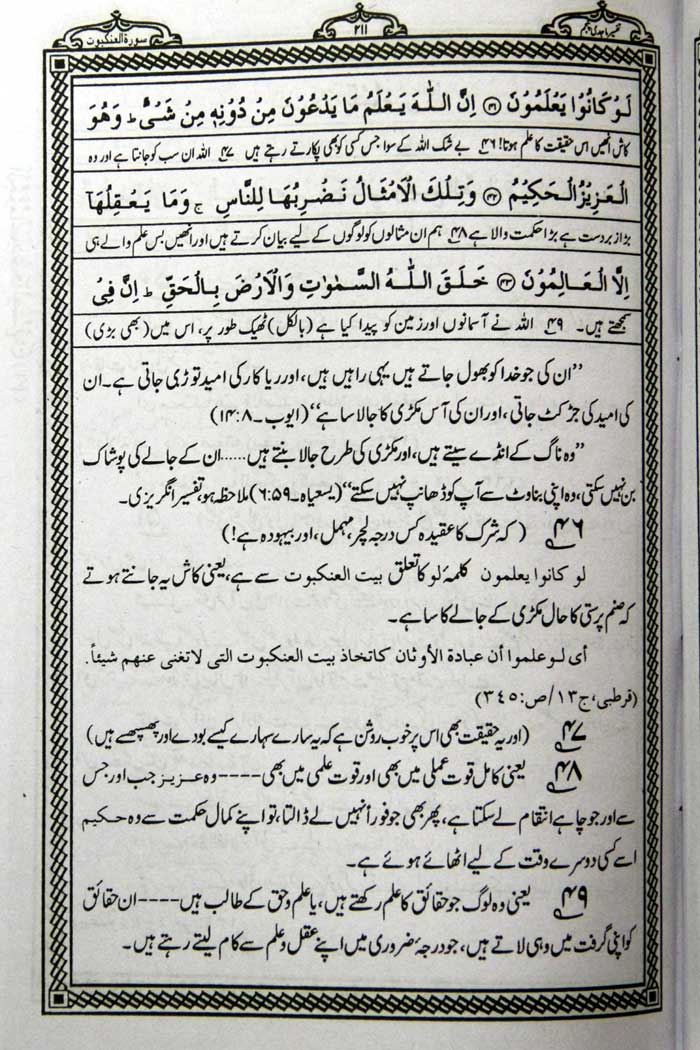 تفسیر ماجدی پنجم
۲۱۱
سورۃ العنکبوت
لَوْ كَانُوْا يَعْلَمُوْنَ ﴿۴۱﴾ اِنَّ اللّٰهَ يَعْلَمُ مَا يَدْعُوْنَ مِنْ دُوْنِهٖ مِنْ شَىْءٍ ؕ وَهُوَ
کاش انھیں اس حقیقت کا علم ہوتا! ۴۶ بے شک اللہ کے سوا جس کسی کو بھی پکارتے رہتے ہیں ۴۷ اللہ ان سب کو جانتا ہے اور وہ
الْعَزِيْزُ الْحَكِيْمُ ﴿۴۲﴾ وَتِلْكَ الْاَمْثَالُ نَضْرِبُهَا لِلنَّاسِ ۚ وَمَا يَعْقِلُهَآ
بڑا زبردست ہے بڑا حکمت والا ہے ۴۸ ہم ان مثالوں کو لوگوں کے لیے بیان کرتے ہیں اور انھیں بس علم والے ہی
اِلَّا الْعَالِمُوْنَ ﴿۴۳﴾ خَلَقَ اللّٰهُ السَّمٰوٰتِ وَالْاَرْضَ بِالْحَقِّ ؕ اِنَّ فِىْ
سمجھتے ہیں۔ ۴۹ اللہ نے آسمانوں اور زمین کو پیدا کیا ہے (بالکل) ٹھیک طور پر، اس میں (بھی بڑی)
”ان کی جو خدا کو بھول جاتے ہیں یہی راہیں ہیں، اور ریاکار کی امید توڑی جاتی ہے۔ ان
کی امید کی جڑ کٹ جاتی، اور ان کی آس مکڑی کا جالا سا ہے“ (ایوب۔ ۸:۱۴)
”وہ ناگ کے انڈے سیتے ہیں، اور مکڑی کی طرح جالا بنتے ہیں...... ان کے جالے کی پوشاک
بن نہیں سکتی، وہ اپنی بناوٹ سے آپ کو ڈھانپ نہیں سکتے“ (یسعیاہ۔ ۵۹:۶) ملاحظہ ہو، تفسیر انگریزی۔
۴۶ (کہ شرک کا عقیدہ کس درجہ لچر، مہمل، اور بیہودہ ہے!)
لو کانوا یعلمون کلمۂ لو کا تعلق بیت العنکبوت سے ہے، یعنی کاش یہ جانتے ہوتے
کہ صنم پرستی کا حال مکڑی کے جالے کا سا ہے۔
أی لو علموا أن عبادة الأوثان کاتخاذ بیت العنکبوت التی لا تغنی عنهم شیئاً.
(قرطبی، ج۱۳/ص:۳۴۵)
۴۷ (اور یہ حقیقت بھی اس پر خوب روشن ہے کہ یہ سارے سہارے کیسے بودے اور پھسپھسے ہیں)
۴۸ یعنی کامل قوت عملی میں بھی اور قوت علمی میں بھی---- وہ عزیز جب اور جس
سے اور جو چاہے انتقام لے سکتا ہے، پھر بھی جو فوراً نہیں لے ڈالتا، تو اپنے کمال حکمت سے وہ حکیم
اسے کسی دوسرے وقت کے لیے اٹھائے ہوئے ہے۔
۴۹ یعنی وہ لوگ جو حقائق کا علم رکھتے ہیں، یا علم و حق کے طالب ہیں---- ان حقائق
کو اپنی گرفت میں وہی لاتے ہیں، جو درجۂ ضروری میں اپنے عقل و علم سے کام لیتے رہتے ہیں۔